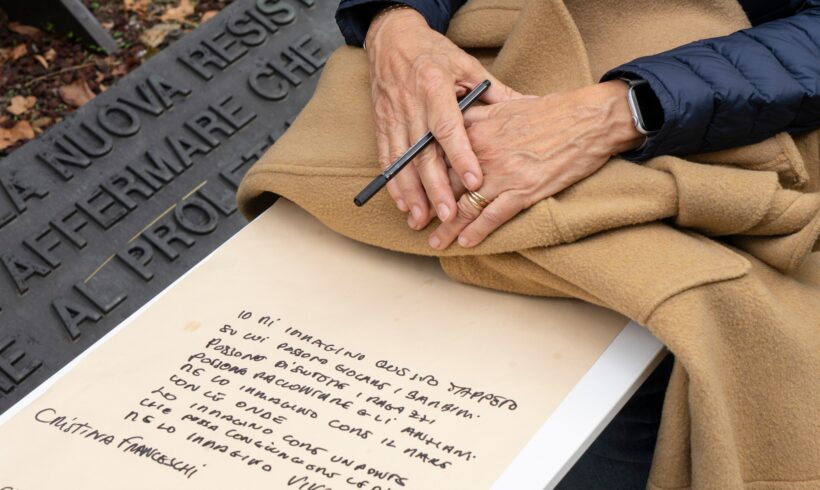 LA NUOVA RESIST
AFFERMARE CHE
AL PROLET
IO MI IMMAGINO QUESTO TAPPETO
SU CUI POSSONO GIOCARE I BAMBINI.
POSSONO DISCUTERE I RAGAZZI
POSSONO RACCONTARE GLI ANZIANI.
ME LO IMMAGINO COME IL MARE
CON LE ONDE
LO IMMAGINO COME UN PONTE
CHE POSSA CONGIUNGERE LE
ME LO IMMAGINO
CRISTINA FRANCESCHI